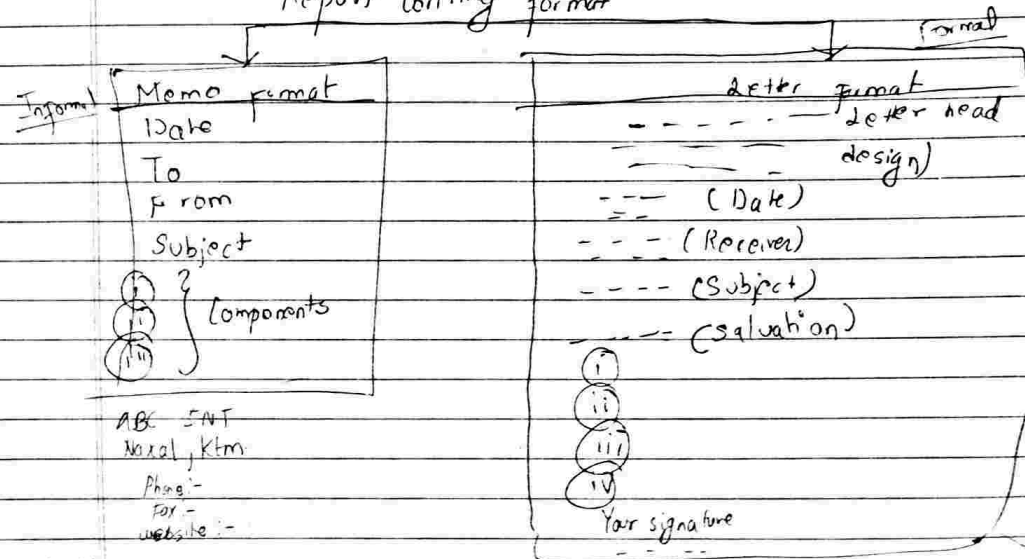 Report writing format
Informal
Memo Format
Date
To
From
Subject
i
ii
iii
Components
ABC INT
Naxal, Ktm
Phone:-
Fax:-
website:-
Formal
Letter Format
Letter head
design)
(Date)
(Receiver)
(Subject)
(Salvation)
i
ii
iii
iv
Your signature